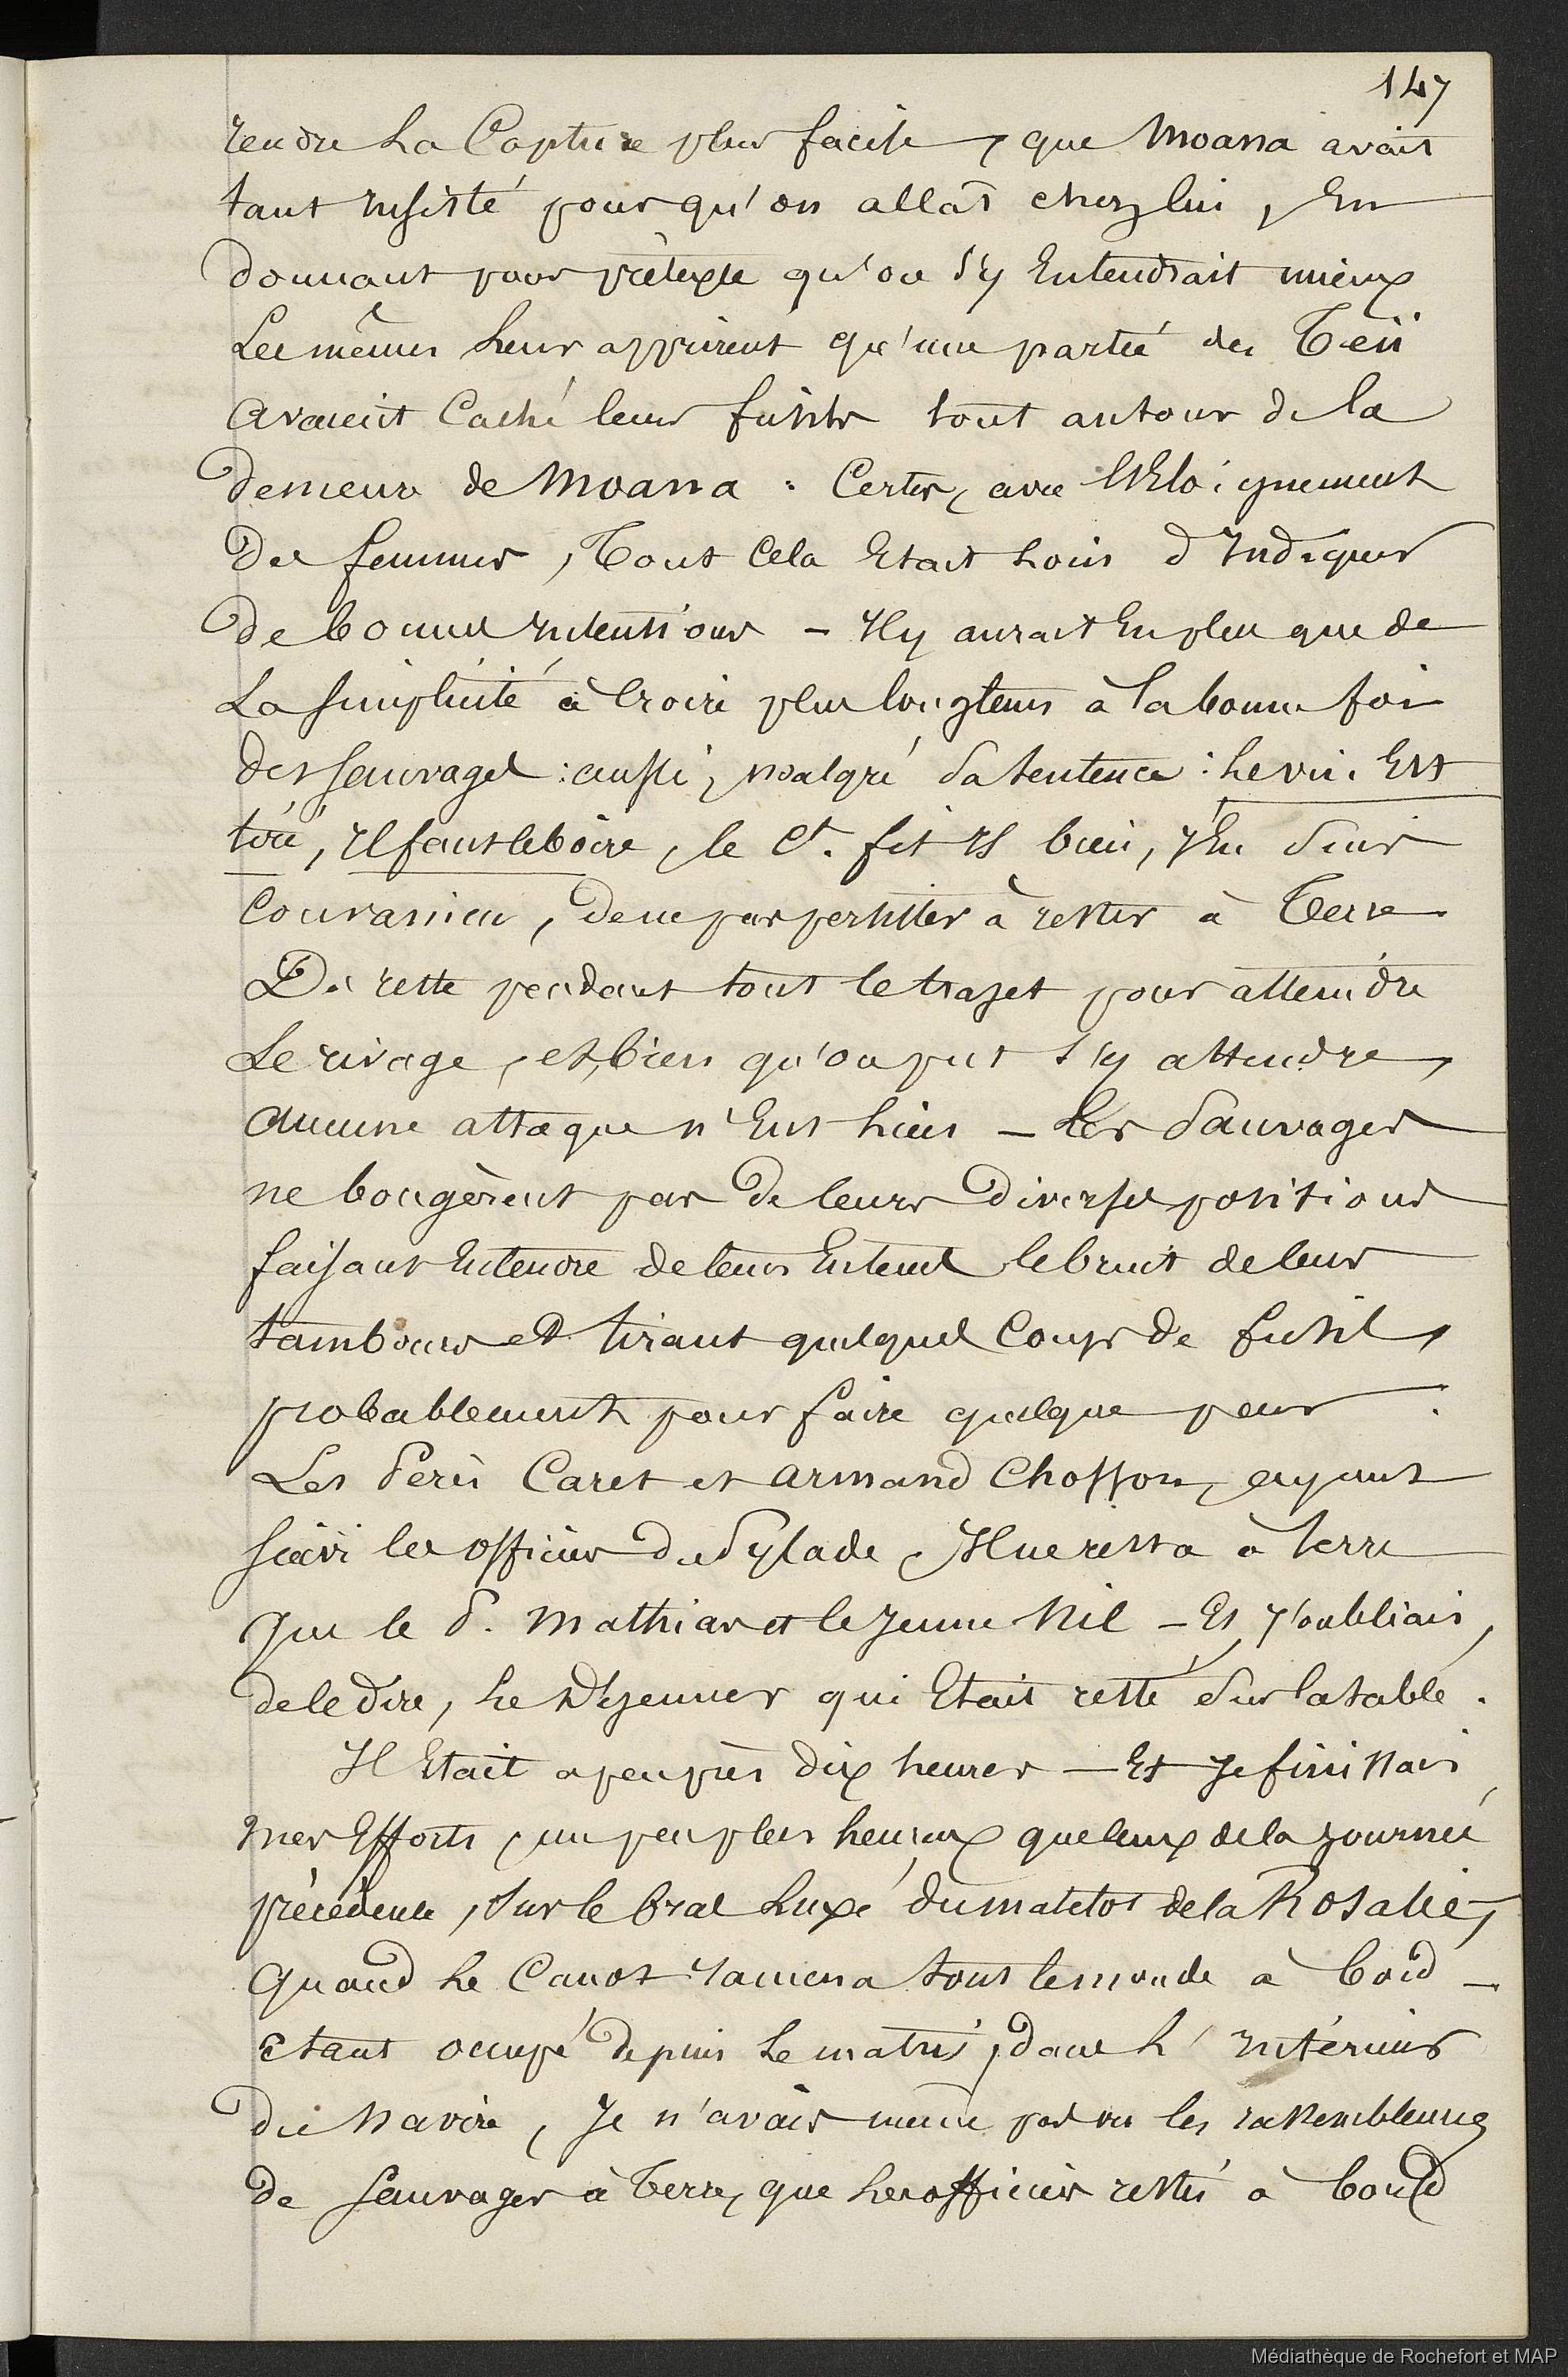 147
rendre la Capture plus facile, que Moana avait
tant insisté pour qu'on allât chez lui, En
donnant pour prétexte qu'on s'y Entendrait mieux
Les mêmes leur apprirent qu'une partie des Teïi
avaient Caché leurs fusils tout autour de la
demeure de Moana : Certes, avec l'Eloignement
Des femmes, Tout Cela Etait loin d'Indiquer
De bonnes Intentions – Il y aurait Eu plus que de
La simplicité à Croire plus longtems à la bonne foi
des sauvages : aussi, malgré sa sentence : le vin Est
tiré, Il faut le boire, le Ct. fit Il bien, J'En suis
Convaincu, de ne pas persister à rester à Terre
Du reste pendant tout le trajet pour atteindre
Le rivage, et, bien qu'on put s'y attendre,
aucune attaque n'Eut lieu – Les Sauvages
ne bougèrent pas De leurs Diverses positions
faisant Entendre de tems En tems le bruit de leurs
tambours et tirant quelques Coups de fusil,
probablement pour faire quelque peur.
Les Pères Caret et Armand Chosson, ayant
suivi les officiers du Pylade, Il ne resta à terre
que le P. Mathias et le Jeune Nil – Et J'oubliais,
de le dire, le Déjeuner qui Etait resté sur la table.
Il Etait a peu près dix heures – Et Je finissais
mes Efforts, un peu plus heureux que ceux de la journée
précédente, sur le bras luxé du matelot de la Rosalie,
quand le Canot ramena tout le monde à bord –
étant occupé depuis le matin, dans l'intérieur
du Navire, Je n'avais même pas vu les rassemblemens
de sauvages à Terre, que les officiers restés à bord